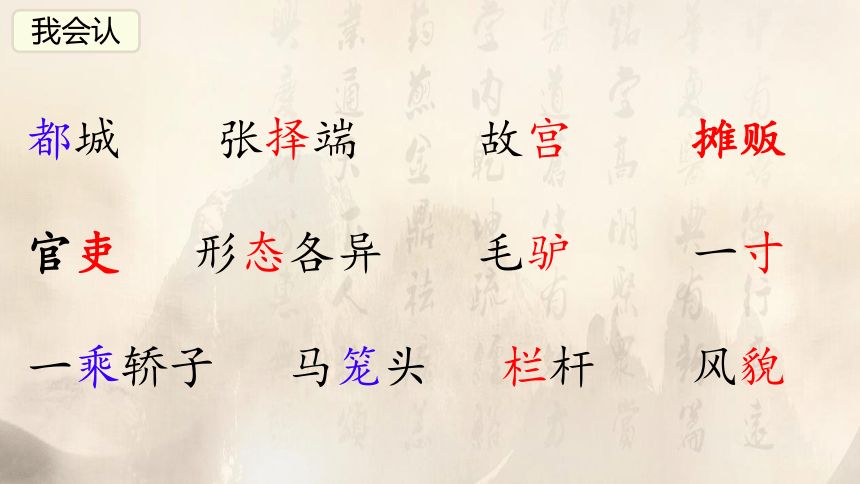 我会认
都城 张择端 故宫 摊贩
官吏 形态各异 毛驴 一寸
一乘轿子 马笼头 栏杆 风貌